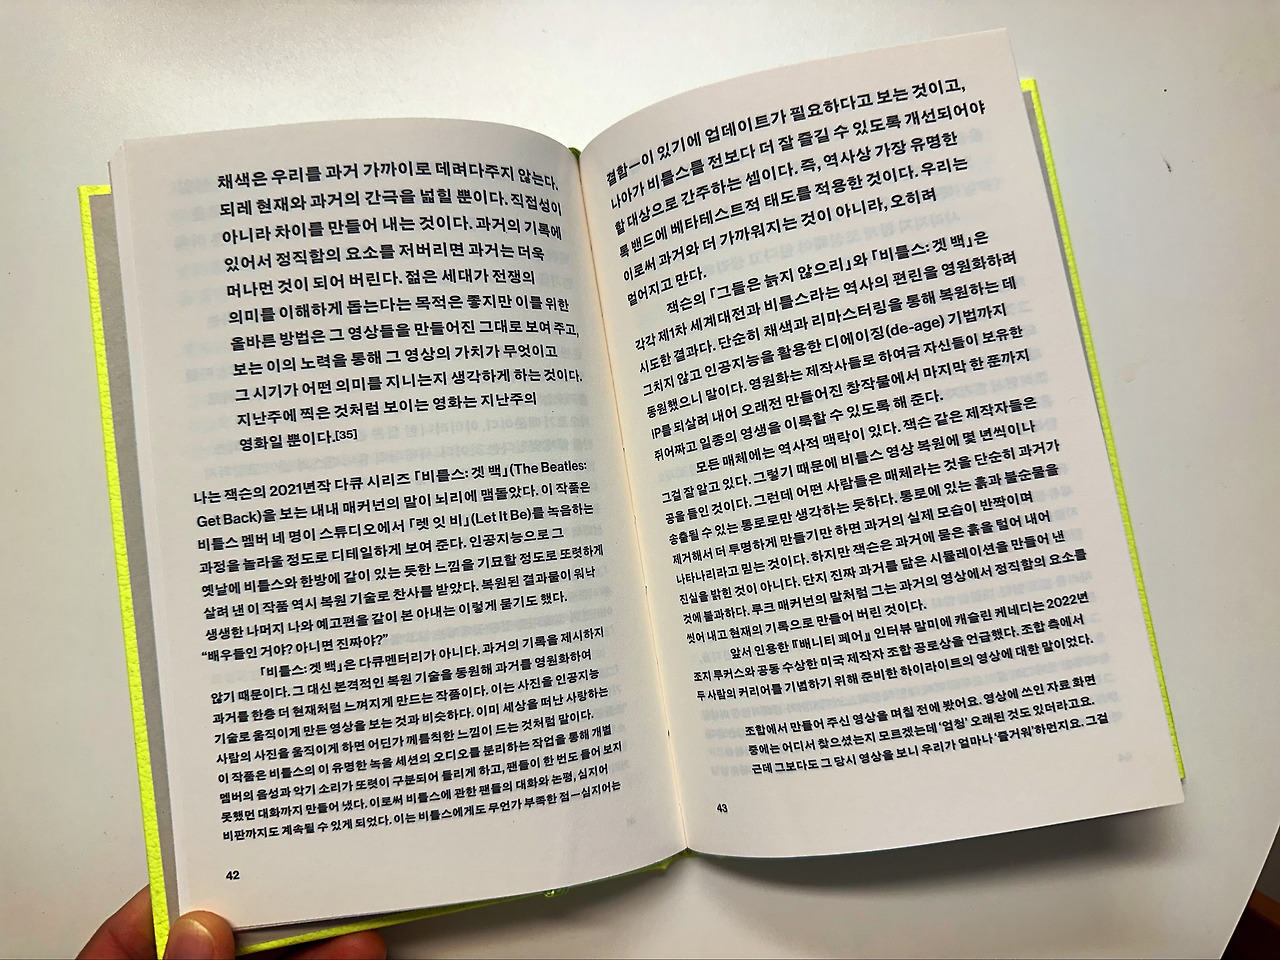 채색은 우리를 과거 가까이로 데려다주지 않는다.
되레 현재와 과거의 간극을 넓힐 뿐이다. 직접성이
아니라 차이를 만들어 내는 것이다. 과거의 기록에
있어서 정직함의 요소를 저버리면 과거는 더욱
머나먼 것이 되어 버린다. 젊은 세대가 전쟁의
의미를 이해하게 돕는다는 목적은 좋지만 이를 위한
올바른 방법은 그 영상들을 만들어진 그대로 보여 주고,
보는 이의 노력을 통해 그 영상의 가치가 무엇이고
그 시기가 어떤 의미를 지니는지 생각하게 하는 것이다.
지난주에 찍은 것처럼 보이는 영화는 지난주의
영화일 뿐이다.[35]
나는 잭슨의 2021년작 다큐 시리즈 「비틀스: 겟 백」(The Beatles:
Get Back)을 보는 내내 매커넌의 말이 뇌리에 맴돌았다. 이 작품은
비틀스 멤버 네 명이 스튜디오에서 「렛 잇 비」(Let It Be)를 녹음하는
과정을 놀라울 정도로 디테일하게 보여 준다. 인공지능으로 그
옛날에 비틀스와 한방에 같이 있는 듯한 느낌을 기묘할 정도로 또렷하게
살려 낸 이 작품 역시 복원 기술로 찬사를 받았다. 복원된 결과물이 워낙
생생한 나머지 나와 예고편을 같이 본 아내는 이렇게 묻기도 했다.
“배우들인 거야? 아니면 진짜야?”
「비틀스: 겟 백」은 다큐멘터리가 아니다. 과거의 기록을 제시하지
않기 때문이다. 그 대신 본격적인 복원 기술을 동원해 과거를 영원화하여
과거를 한층 더 현재처럼 느껴지게 만드는 작품이다. 이는 사진을 인공지능
기술로 움직이게 만든 영상을 보는 것과 비슷하다. 이미 세상을 떠난 사랑하는
사람의 사진을 움직이게 하면 어딘가 께름칙한 느낌이 드는 것처럼 말이다.
이 작품은 비틀스의 이 유명한 녹음 세션의 오디오를 분리하는 작업을 통해 개별
멤버의 음성과 악기 소리가 또렷이 구분되어 들리게 하고, 팬들이 한 번도 들어 보지
못했던 대화까지 만들어 냈다. 이로써 비틀스에 관한 팬들의 대화와 논평, 심지어
비판까지도 계속될 수 있게 되었다. 이는 비틀스에게도 무언가 부족한 점—심지어는
42
결함—이 있기에 업데이트가 필요하다고 보는 것이고,
나아가 비틀스를 전보다 더 잘 즐길 수 있도록 개선되어야
할 대상으로 간주하는 셈이다. 즉, 역사상 가장 유명한
록 밴드에 베타테스트적 태도를 적용한 것이다. 우리는
이로써 과거와 더 가까워지는 것이 아니라, 오히려
멀어지고 만다.
잭슨의 「그들은 늙지 않으리」와 「비틀스: 겟 백」은
각각 제1차 세계대전과 비틀스라는 역사의 편린을 영원화하려
시도한 결과다. 단순히 채색과 리마스터링을 통해 복원하는 데
그치지 않고 인공지능을 활용한 디에이징(de-age) 기법까지
동원했으니 말이다. 영원화는 제작사들로 하여금 자신들이 보유한
IP를 되살려 내어 오래전 만들어진 창작물에서 마지막 한 푼까지
쥐어짜고 일종의 영생을 이룩할 수 있도록 해 준다.
모든 매체에는 역사적 맥락이 있다. 잭슨 같은 제작자들은
그걸 잘 알고 있다. 그렇기 때문에 비틀스 영상 복원에 몇 년씩이나
공을 들인 것이다. 그런데 어떤 사람들은 매체라는 것을 단순히 과거가
송출될 수 있는 통로로만 생각하는 듯하다. 통로에 있는 흙과 불순물을
제거해서 더 투명하게 만들기만 하면 과거의 실제 모습이 반짝이며
나타나리라고 믿는 것이다. 하지만 잭슨은 과거에 묻은 흙을 털어 내어
진실을 밝힌 것이 아니다. 단지 진짜 과거를 닮은 시뮬레이션을 만들어 낸
것에 불과하다. 루크 매커넌의 말처럼 그는 과거의 영상에서 정직함의 요소를
씻어 내고 현재의 기록으로 만들어 버린 것이다.
앞서 인용한 『배니티 페어』 인터뷰 말미에 캐슬린 케네디는 2022년
조지 루커스와 공동 수상한 미국 제작자 조합 공로상을 언급했다. 조합 측에서
두 사람의 커리어를 기념하기 위해 준비한 하이라이트의 영상에 대한 말이었다.
조합에서 만들어 주신 영상을 며칠 전에 봤어요. 영상에 쓰인 자료 화면
중에는 어디서 찾으셨는지 모르겠는데 ‘엄청’ 오래된 것도 있더라고요.
근데 그보다도 그 당시 영상을 보니 우리가 얼마나 ‘즐거워’하던지요. 그걸
43